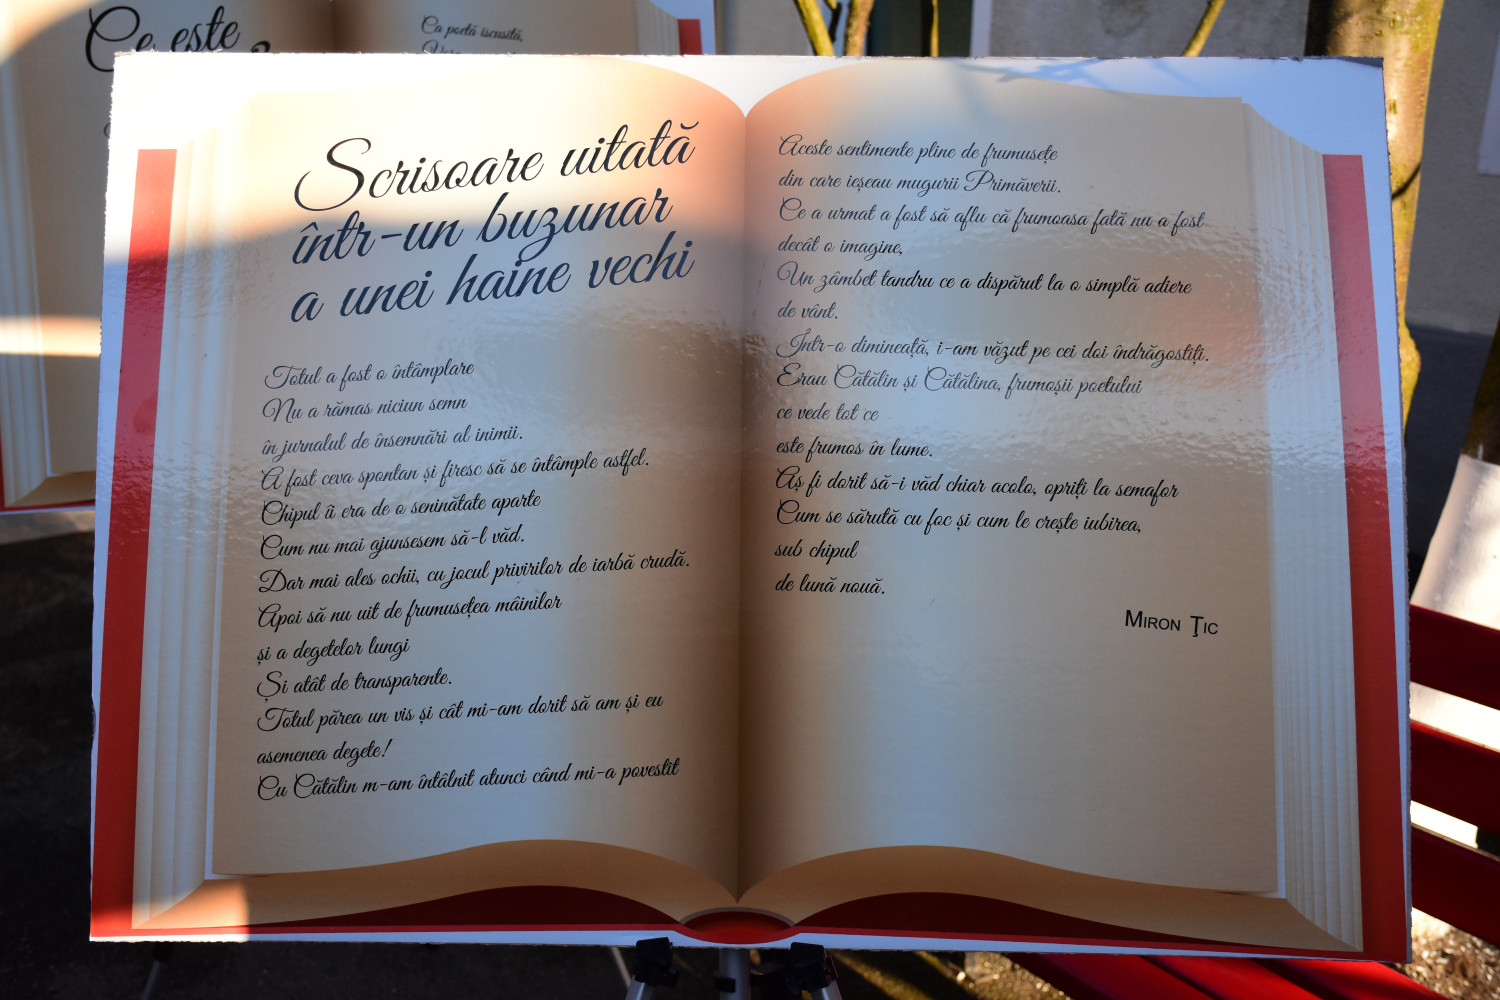 Ce este
Ca poetă iscusită,
Scrisoare uitată
într-un buzunar
a unei haine vechi
Totul a fost o întâmplare
Nu a rămas niciun semn
în jurnalul de însemnări al inimii.
A fost ceva spontan și firesc să se întâmple astfel.
Chipul îi era de o seninătate aparte
Cum nu mai ajunsesem să-l văd.
Dar mai ales ochii, cu jocul privirilor de iarbă crudă.
Apoi să nu uit de frumusețea mâinilor
și a degetelor lungi
Și atât de transparente.
Totul părea un vis și cât mi-am dorit să am și eu
asemenea degete!
Cu Cătălin m-am întâlnit atunci când mi-a povestit
Aceste sentimente pline de frumusețe
din care ieșeau mugurii Primăverii.
Ce a urmat a fost să aflu că frumoasa fată nu a fost
decât o imagine,
Un zâmbet tandru ce a dispărut la o simplă adiere
de vânt.
Într-o dimineață, i-am văzut pe cei doi îndrăgostiți.
Erau Cătălin și Cătălina, frumoșii poetului
ce vede tot ce
este frumos în lume.
Aș fi dorit să-i văd chiar acolo, opriți la semafor
Cum se sărută cu foc și cum le crește iubirea,
sub chipul
de lună nouă.
Miron Ţic